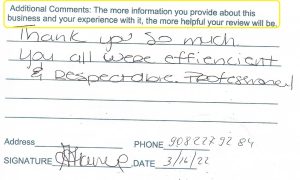 Additional Comments: The more information you provide about this
business and your experience with it, the more helpful your review will be.
Thank you so much
You all were effiencient
& Respectable. Professional
Address PHONE 908 227 92 84
SIGNATURE DATE 3/16/22